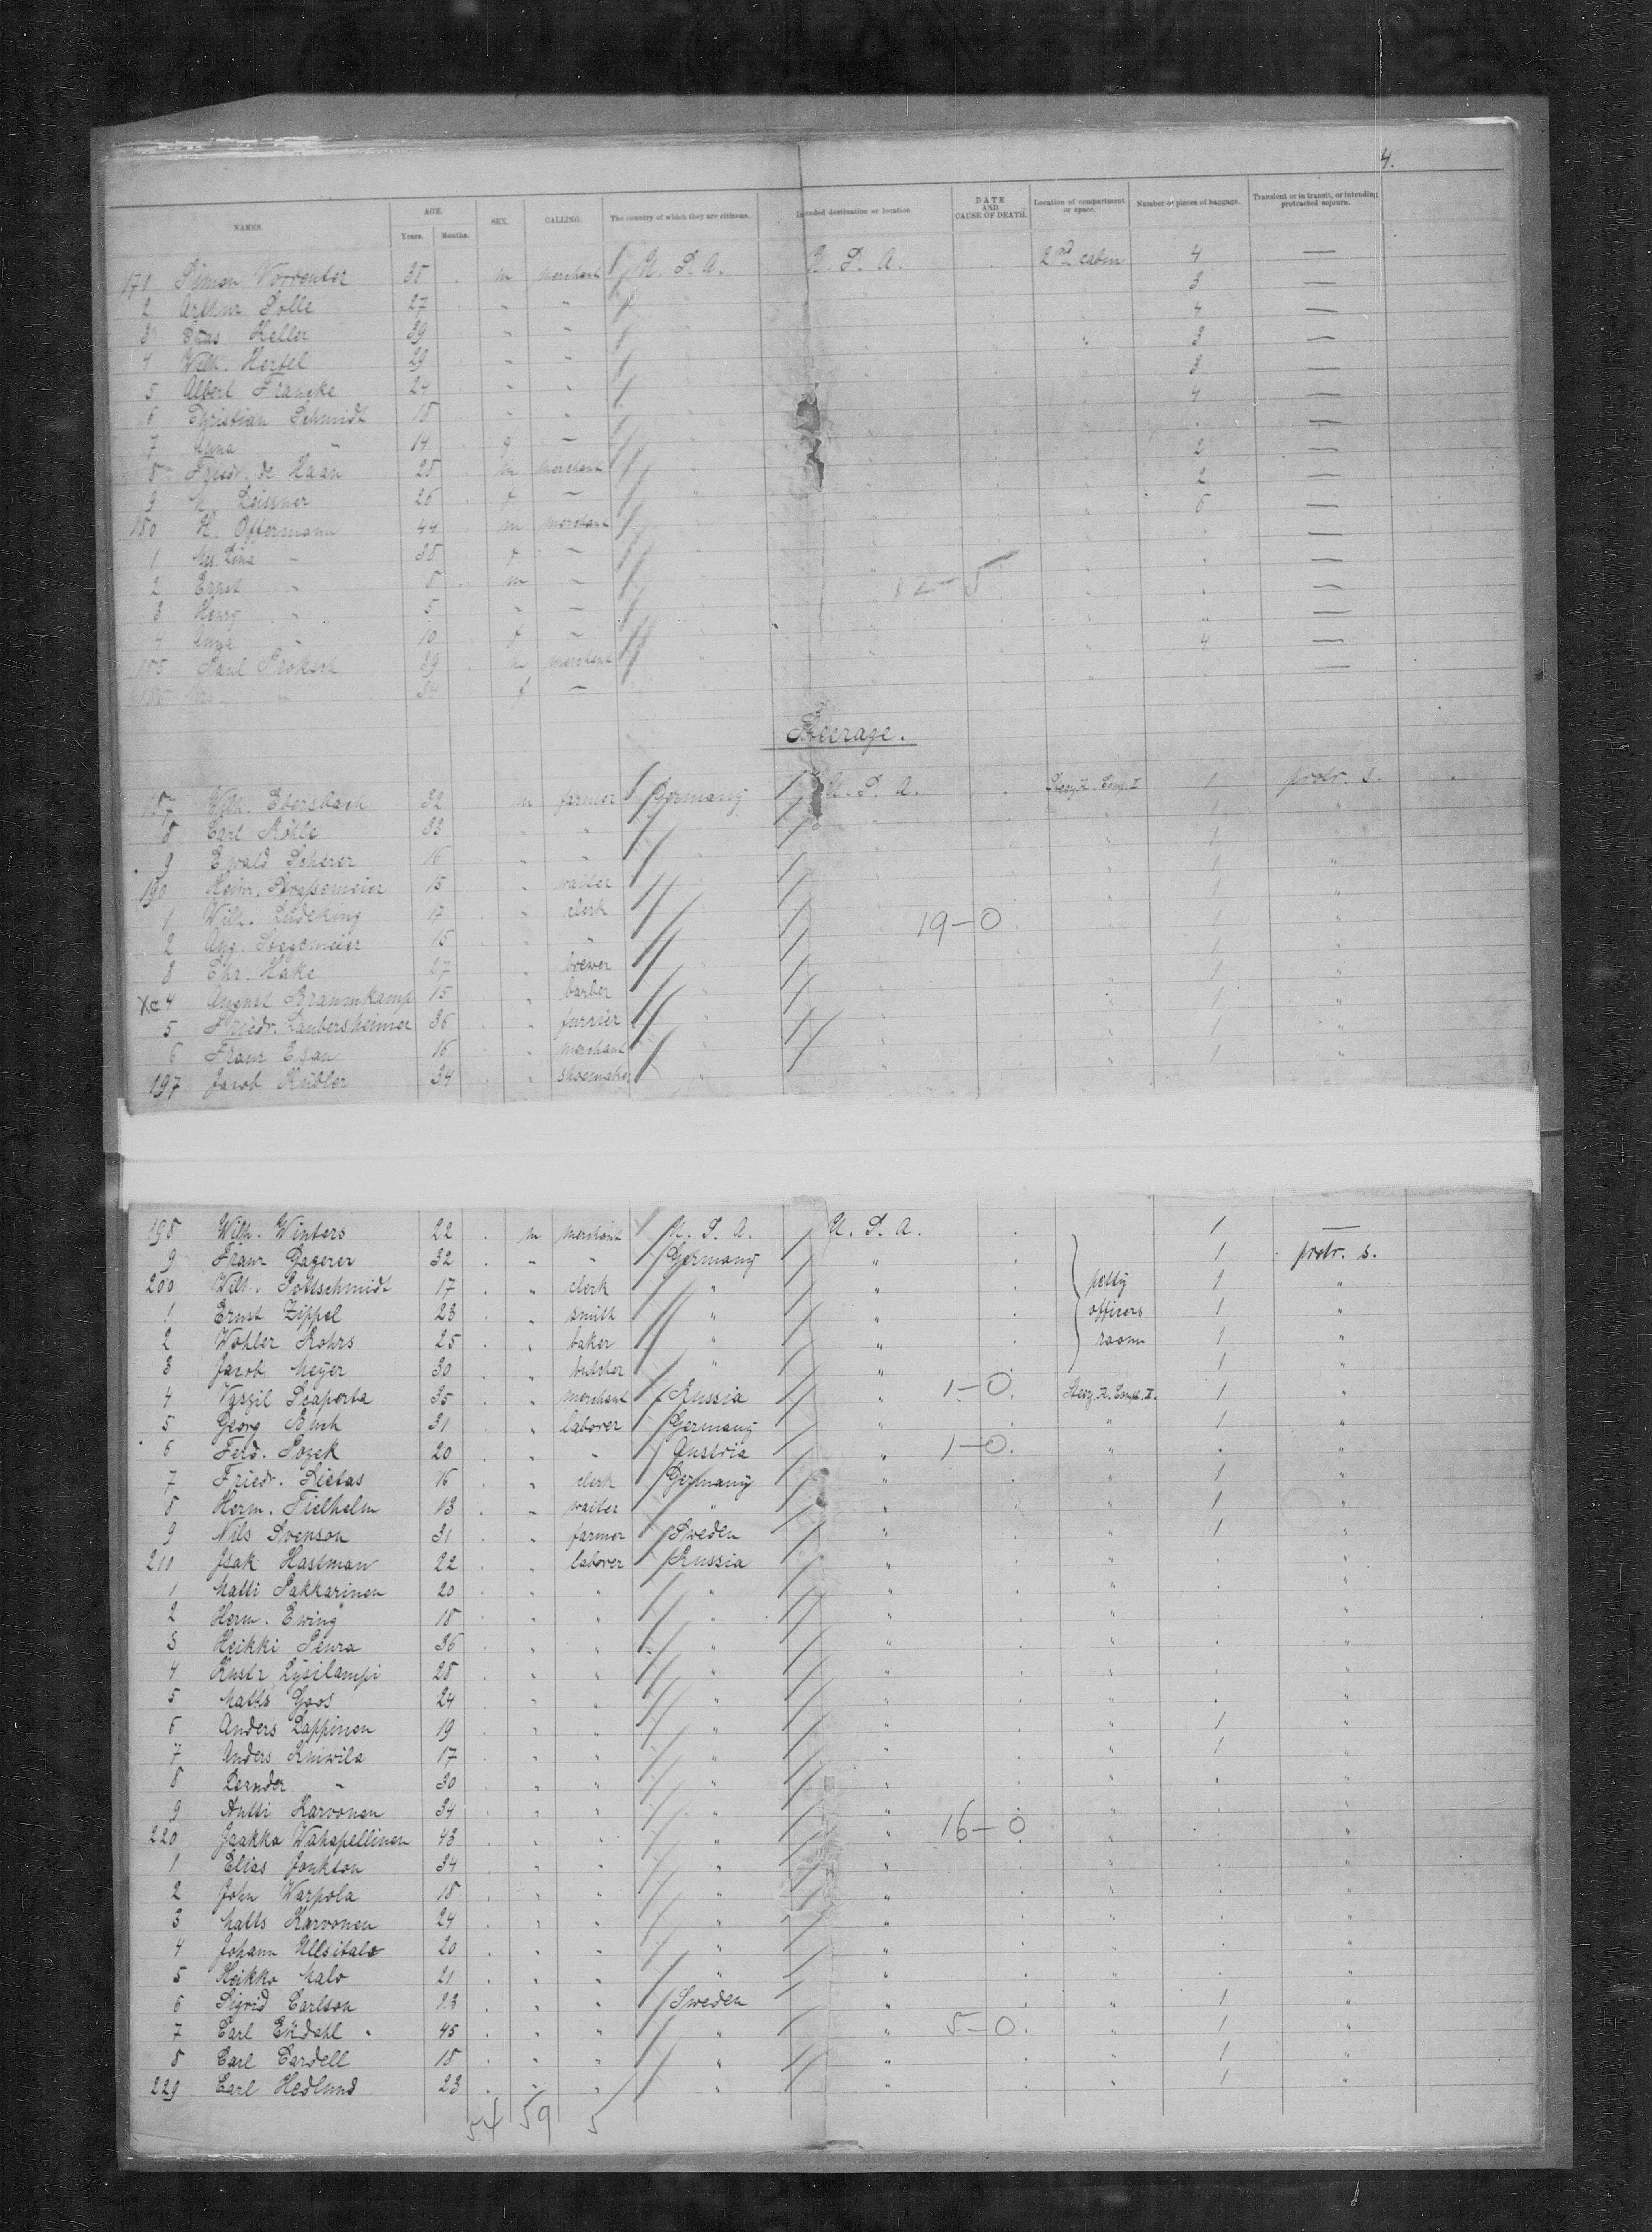 4.
NAMES. AGE. Years. Months. SEX. CALLING. The country of which they are citizens. Intended destination or location. DATE AND CAUSE OF DEATH. Location of compartment or space. Number of pieces of baggage. Transient or in transit, or intending protracted sojourn.
171 Simon 38 m merchant U. S. A. U. S. A. 2nd cabin 4 —
2 Arthur Solle 27 " " " 3 —
3 Keller 39 " " " 4 —
4 Wilh. Hertel 29 " " 3 —
5 Albert Francke 24 " " 3 —
6 Christian Schmidt 18 " " 4 —
7 Anna " 14 — " —
8 Friedr. de Haan 28 m merchant 2 —
9 26 f — 2 —
180 H. Offermann 44 m merchant 6 —
1 Mrs. Lina " 38 f — —
2 Ernst " 8 m — 12-5 —
3 Henry " 5 " — —
4 Anna " 19 f — —
185 Paul Proksch 39 m merchant 4 —
186 Mrs. " 34 f — —
Steerage.
187 Wilh. Ebersbach 32 m farmer Germany U. S. A. Steer. A. Comp. I 1 protr. s.
8 Carl Röhle 33 " " " 1 "
9 Ewald Scherer 16 " " " 1
190 Heinr. 15 " waiter " 1 "
1 Wilh. Lüdeking 17 " clerk " 1 "
2 Aug. 15 " " 19-0 1 "
3 Chr. Hake 27 " brewer " 1 "
Xc 4 August Braunnkamp 15 " barber " 1 "
5 Friedr. Laubersheimer 36 " furrier " 1 "
6 Franz Esau 16 " merchant " 1 "
197 Jacob Kübler 34 " shoemaker " 1 "
198 Wilh. Winters 22 m merchant U. S. A. U. S. A. 1 —
9 Franz Gagerer 32 " " Germany " 1 protr. s.
200 Wilh. Pottschmidt 17 " clerk " " petty 1 "
1 Ernst Zippel 23 " smith " " officers 1 "
2 Wohler Rohrs 25 " baker " " room 1 "
3 Jacob Meyer 30 " butcher " " 1 "
4 35 " merchant Russia " 1-0. Steer. A. Comp. II. 1 "
5 Georg Buch 31 " laborer Germany " " 1 "
6 Ferd. Poyek 20 " " Austria " 1-0. " "
7 Friedr. Dietas 16 " clerk Germany " " 1 "
8 Herm. Tielhelm 13 " waiter " " " 1 "
9 Nils Svenson 31 " farmer Sweden " " 1 "
210 Isak Hastman 22 " laborer Russia " " "
1 Matti Pakkarinen 20 " " " " " "
2 Herm. Ewing 18 " " " " " "
3 Heikki Peura 36 " " " " " "
4 Kusta Lysilampi 28 " " " " " "
5 Matts Goos 24 " " " " " "
6 Anders Lappinen 19 " " " " " 1 "
7 Anders Kniwila 17 " " " " " 1 "
8 Leander " 30 " " " " " "
9 Antti Karvonen 34 " " " " " "
220 Jaakko Wahapellinen 43 " " " " 16-0 " "
1 Elias Jonkton 34 " " " " " "
2 John Warpola 18 " " " " " "
3 Matts Karvonen 24 " " " " " "
4 Johann Ullsitalo 20 " " " " " "
5 Heikko Malo 21 " " " " " "
6 Sigrid Carlson 23 " " Sweden " " 1 "
7 Carl Ekdahl 45 " " " " 5-0. " 1 "
8 Carl Cardell 18 " " " " " 1 "
229 Carl Hedlund 23 " " " " " 1 "
54 59 5